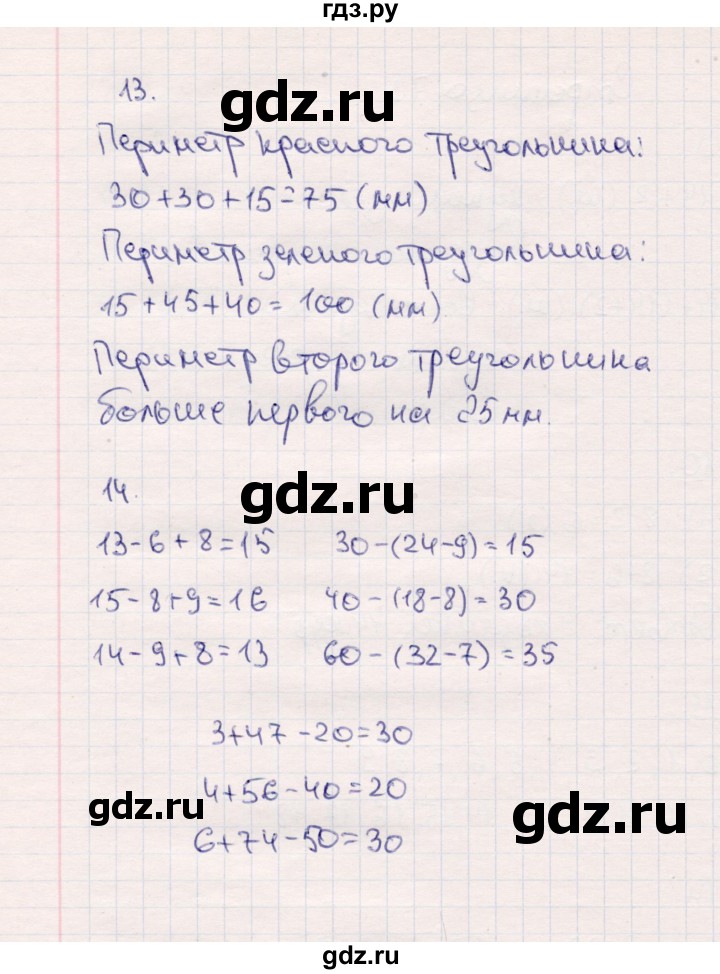 гдз.ру
13.
gdz.ru
Периметр красного треугольника:
30+30+15=75 (мм)
Периметр зеленого треугольника:
15+45+40=100 (мм)
Периметр второго треугольника
больше первого на 25 мм.
14.
gdz.ru
13-6+8=15 30-(24-9)=15
15-8+9=16 40-(18-8)=30
14-9+8=13 60-(32-7)=35
3+47-20=30
4+56-40=20
gdz.ru
gdz.ru
6+74-50=30
gdz.ru